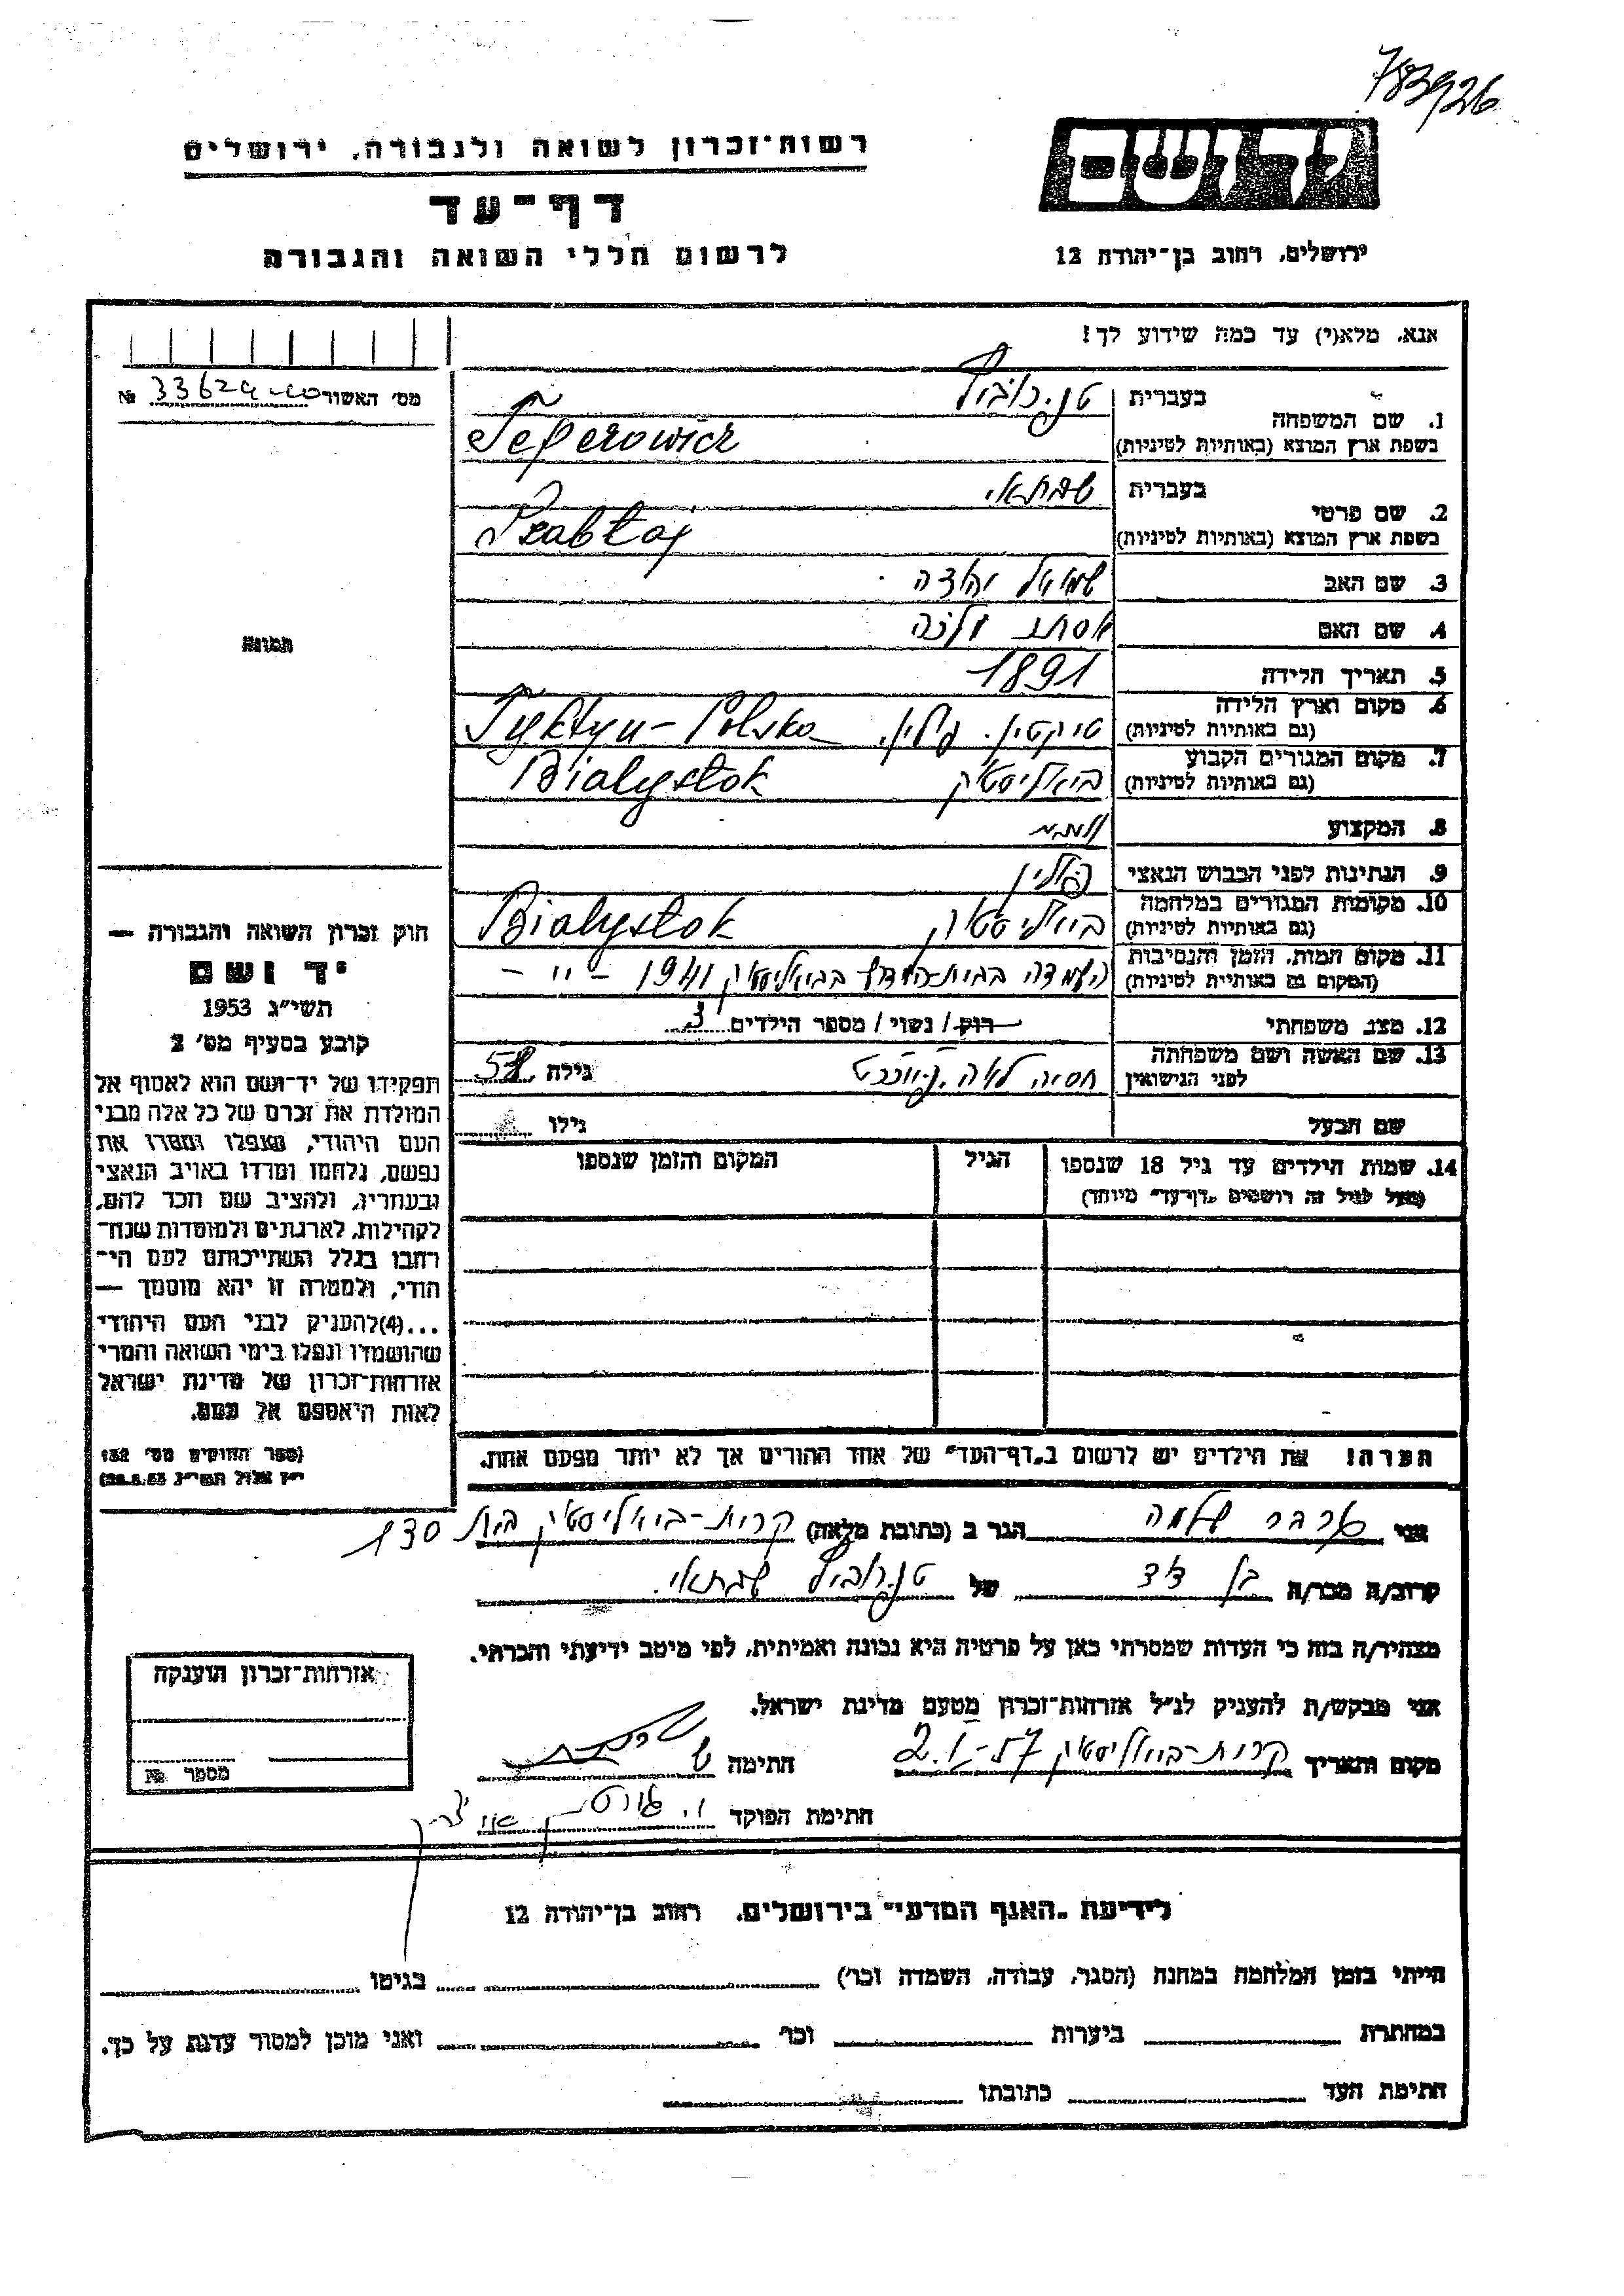 783926
רשות־זכרון לשואה ולגבורה, ירושלים
דף־עד
לרשום חללי השואה והגבורה
יד ושם
ירושלים, רחוב בן־יהודה 12
אנא, מלא(י) עד כמה שידוע לך!
מס׳ האשור №
1. שם המשפחה
בעברית
בשפת ארץ המוצא (באותיות לטיניות)
2. שם פרטי
בעברית שבתאי
בשפת ארץ המוצא (באותיות לטיניות) Szabtaj
3. שם האב שמואל יהודה
4. שם האם אסתר מלכה
5. תאריך הלידה 1891
6. מקום וארץ הלידה
(גם באותיות לטיניות) טיקטין. פולין. Tyktyn - Polska
7. מקום המגורים הקבוע
(גם באותיות לטיניות) ביאליסטוק Bialystok
8. המקצוע
9. הנתינות לפני הכבוש הנאצי פולין
10. מקומות המגורים במלחמה
(גם באותיות לטיניות) ביאליסטוק Bialystok
11. מקום המות, הזמן והנסיבות
(המקום גם באותיות לטיניות) בביאליסטוק 1941
12. מצב משפחתי רוק / נשוי / מספר הילדים 3
13. שם האשה ושם משפחתה
לפני הנישואין חסיה לאה גילה
שם הבעל גילו
14. שמות הילדים עד גיל 18 שנספו
(מעל לגיל זה רושמים "דף־עד" מיוחד)
הגיל
המקום והזמן שנספו
הערה! את הילדים יש לרשום ב"דף־העד" של אחד ההורים אך לא יותר מפעם אחת.
תמונה
חוק זכרון השואה והגבורה —
יד ושם
תשי״ג 1953
קובע בסעיף מס׳ 2
תפקידו של יד־ושם הוא לאסוף אל
המולדת את זכרם של כל אלה מבני
העם היהודי, שנפלו ומסרו את
נפשם, נלחמו ומרדו באויב הנאצי
ובעוזריו, ולהציב שם וזכר להם,
לקהילות, לארגונים ולמוסדות שנח־
רבו בגלל השתייכותם לעם הי־
הודי, ולמטרה זו יהא מוסמך —
...(4) להעניק לבני העם היהודי
שהושמדו ונפלו בימי השואה והמרי
אזרחות־זכרון של מדינת ישראל
לאות היאספם אל עמם.
(ספר החוקים מס׳ 132
י״ז אלול תשי״ג 28.8.53)
אני שלמה הגר ב (כתובת מלאה) קרית-ביאליסטוק בית 130
קרוב/ה מכר/ה בן דוד של שבתאי.
מצהיר/ה בזה כי העדות שמסרתי כאן על פרטיה היא נכונה ואמיתית, לפי מיטב ידיעתי והכרתי.
אני מבקש/ת להעניק לנ״ל אזרחות־זכרון מטעם מדינת ישראל.
מקום ותאריך קרית-ביאליסטוק 2.I.57 חתימה
חתימת הפוקד
אזרחות־זכרון הוענקה
מספר №
לידיעת "האגף המדעי" בירושלים, רחוב בן־יהודה 12
הייתי בזמן המלחמה במחנה (הסגר, עבודה, השמדה וכר׳) בגיטו
במחתרת ביערות וכר׳ ואני מוכן למסור עדות על כך.
חתימת העד כתובתו